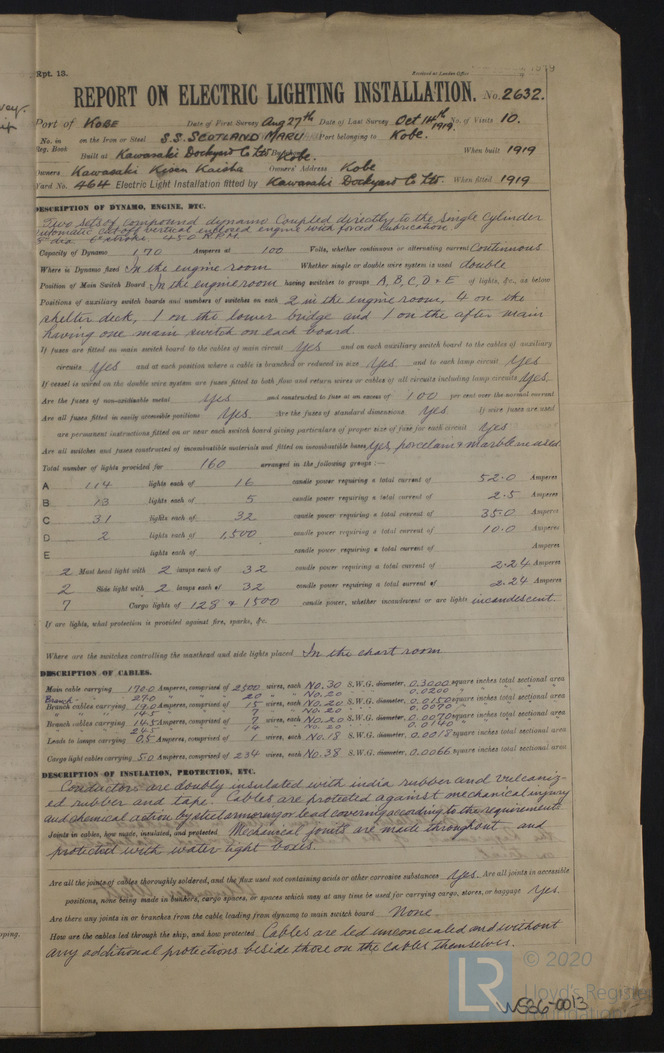 Rpt. 13.
Received at London Office
REPORT ON ELECTRIC LIGHTING INSTALLATION. No. 2632.
Port of Kobe Date of First Survey Aug 27th Date of Last Survey Oct 14th 1919. No. of Visits 10.
No. in Reg. Book on the Iron or Steel S.S. SCOTLAND MARU Port belonging to Kobe.
Built at Kawasaki Dockyard Co Ltd Kobe. When built 1919
Owners Kawasaki Kisen Kaisha Owners' Address Kobe
Yard No. 464 Electric Light Installation fitted by Kawasaki Dockyard Co Ltd. When fitted 1919
DESCRIPTION OF DYNAMO, ENGINE, ETC.
Two sets of compound dynamo coupled directly to the single cylinder
automatic cut off vertical enclosed engine with forced lubrication
8" dia. 6" stroke. 450 R.P.M.
Capacity of Dynamo 170 Amperes at 100 Volts, whether continuous or alternating current Continuous
Where is Dynamo fixed In the engine room Whether single or double wire system is used double
Position of Main Switch Board In the engine room having switches to groups A, B, C, D & E of lights, &c., as below
Positions of auxiliary switch boards and numbers of switches on each 2 in the engine room, 4 on the
shelter deck, 1 on the lower bridge and 1 on the after main
having one main switch on each board
If fuses are fitted on main switch board to the cables of main circuit Yes and on each auxiliary switch board to the cables of auxiliary
circuits Yes and at each position where a cable is branched or reduced in size Yes and to each lamp circuit Yes
If vessel is wired on the double wire system are fuses fitted to both flow and return wires or cables of all circuits including lamp circuits Yes.
Are the fuses of non-oxidizable metal Yes and constructed to fuse at an excess of 100 per cent over the normal current
Are all fuses fitted in easily accessible positions Yes. Are the fuses of standard dimensions Yes If wire fuses are used
are permanent instructions fitted on or near each switch board giving particulars of proper size of fuse for each circuit Yes
Are all switches and fuses constructed of incombustible materials and fitted on incombustible bases Yes, porcelain & marble used
Total number of lights provided for 160 arranged in the following groups :—
A 114 lights each of 16 candle power requiring a total current of 52.0 Amperes
B 13 lights each of 5 candle power requiring a total current of 2.5 Amperes
C 31 lights each of 32 candle power requiring a total current of 35.0 Amperes
D 2 lights each of 1,500 candle power requiring a total current of 10.0 Amperes
E lights each of candle power requiring a total current of Amperes
2 Mast head light with 2 lamps each of 32 candle power requiring a total current of 2.24 Amperes
2 Side light with 2 lamps each of 32 candle power requiring a total current of 2.24 Amperes
7 Cargo lights of 128 & 1500 candle power, whether incandescent or arc lights incandescent.
If arc lights, what protection is provided against fire, sparks, &c.
Where are the switches controlling the masthead and side lights placed In the chart room
DESCRIPTION OF CABLES.
Main cable carrying 170.0 Amperes, comprised of 2500 wires, each No. 30 S.W.G. diameter, 0.3000 square inches total sectional area
Branch 27.0 20 No. 20 0.0200
Branch cables carrying 19.0 Amperes, comprised of 15 wires, each No. 20 S.W.G. diameter, 0.0150 square inches total sectional area
14.5 7 No. 20 0.0070
Branch cables carrying 14.5 Amperes, comprised of 7 wires, each No. 20 S.W.G. diameter, 0.0070 square inches total sectional area
24.5 14 No. 20 0.0140
Leads to lamps carrying 0.5 Amperes, comprised of 1 wires, each No. 18 S.W.G. diameter, 0.0018 square inches total sectional area
Cargo light cables carrying 5.0 Amperes, comprised of 234 wires, each No. 38 S.W.G. diameter, 0.0066 square inches total sectional area
DESCRIPTION OF INSULATION, PROTECTION, ETC.
Conductors are doubly insulated with india rubber and vulcaniz-
ed rubber and tape. Cables are protected against mechanical injury
and chemical action by steel armoring or lead covering according to the requirements
Joints in cables, how made, insulated, and protected Mechanical joints are made throughout and
protected with water tight boxes.
Are all the joints of cables thoroughly soldered, and the flux used not containing acids or other corrosive substances Yes. Are all joints in accessible
positions, none being made in bunkers, cargo spaces, or spaces which may at any time be used for carrying cargo, stores, or baggage Yes.
Are there any joints in or branches from the cable leading from dynamo to main switch board None
How are the cables led through the ship, and how protected Cables are led unconcealed and without
any additional protections beside those on the cables themselves.
LR
© 2020
Lloyd's Register
Foundation
W536-0013